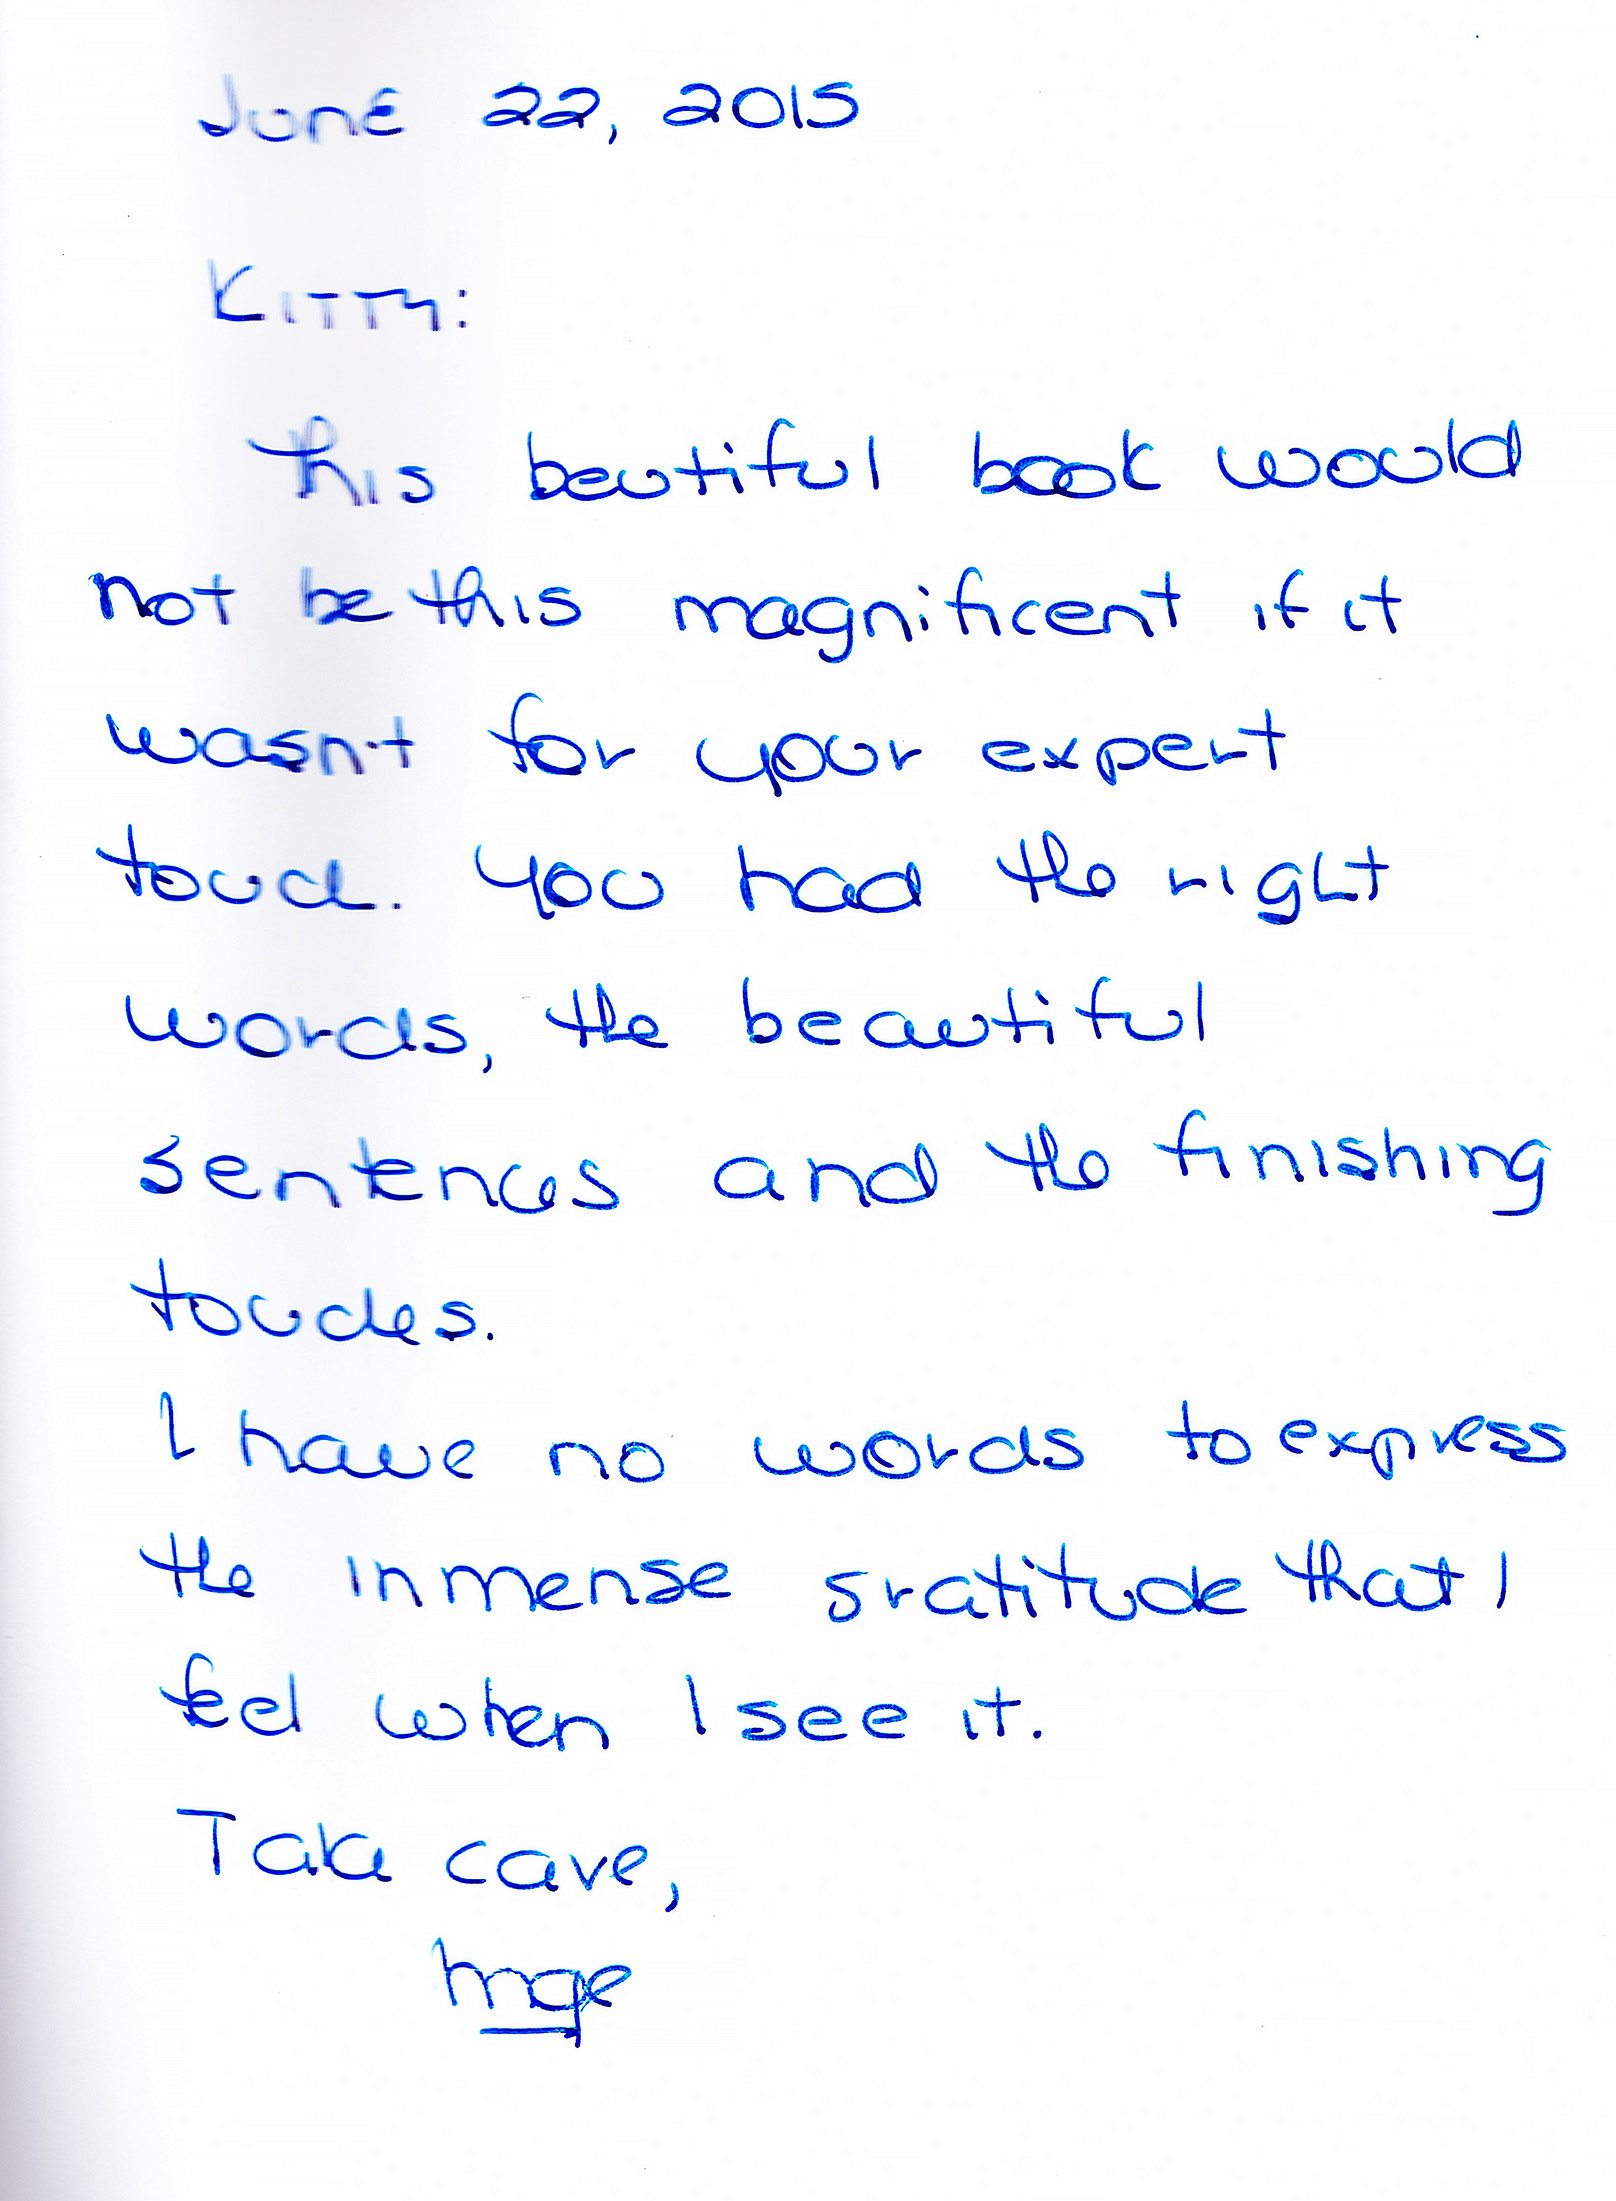 June 22, 2015
Kitty:
This beutiful book would
not be this magnificent if it
wasn't for your expert
touch. You had the right
words, the beautiful
sentences and the finishing
touches.
I have no words to express
the inmense gratitude that I
feel when I see it.
Take care,